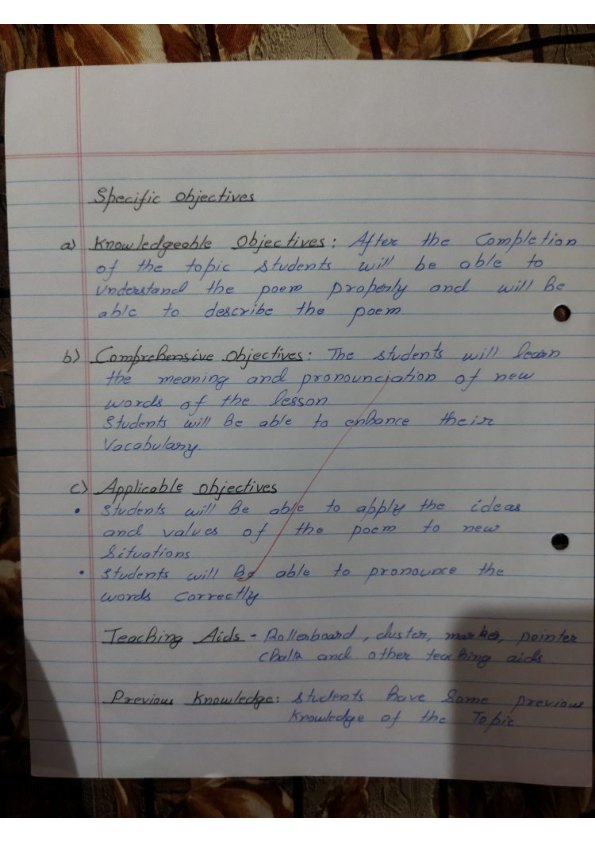 Specific Objectives
a) Knowledgeable Objectives: After the Completion
of the topic students will be able to
understand the poem properly and will be
able to describe the poem
b) Comprehensive Objectives: The students will learn
the meaning and pronounciation of new
words of the lesson
Students will Be able to enhance their
Vocabulary.
c) Applicable Objectives
• Students will Be able to apply the ideas
and values of the poem to new
Situations
• Students will Be able to pronounce the
words correctly
Teaching Aids - Rollerboard, duster, marker, pointer
chalk and other teaching aids
Previous Knowledge: Students have Some previous
Knowledge of the Topic